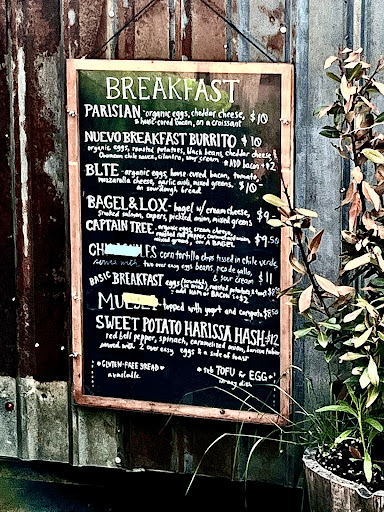 BREAKFAST
PARISIAN - organic eggs, cheddar cheese, $10
& house-cured bacon, on a croissant
NUEVO BREAKFAST BURRITO $10
organic eggs, roasted potatoes, black beans, cheddar cheese,
chile sauce, cilantro, sour cream * ADD bacon + $2
BLTE - organic eggs, house-cured bacon, tomato,
mozzarella cheese, garlic aioli, mixed greens, $10
on sourdough bread
BAGEL & LOX - bagel w/ cream cheese, $9
smoked salmon, capers, pickled onion, mixed greens
CAPTAIN TREE - organic eggs, cream cheese, $9.50
roasted red pepper, caramelized onion,
mixed greens, on a BAGEL
CH LES corn tortilla chips tossed in chile verde
served with two over easy eggs, beans, pico de gallo,
& sour cream $11
BASIC BREAKFAST eggs roasted potatoes & toast $8
add HAM or BACON + $2
MUE topped with yogurt and $8.50
SWEET POTATO HARISSA HASH $12
red bell pepper, spinach, caramelized onion,
served with 2 over easy eggs & a side of toast
* GLUTEN-FREE BREAD *
available
* sub TOFU for EGG *
in any dish